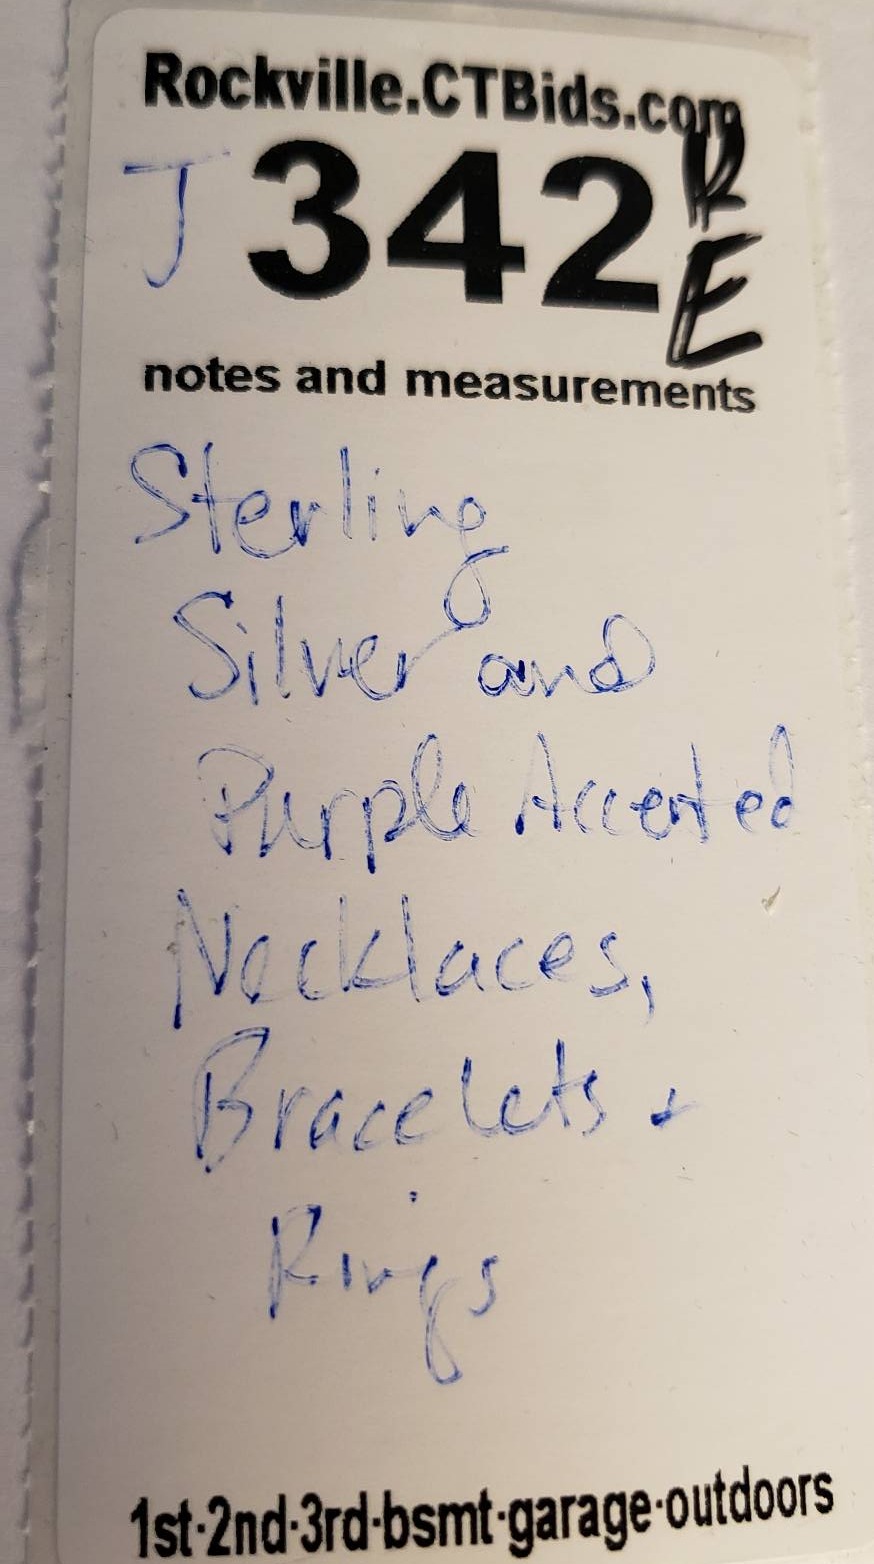 Rockville.CTBids.com
J 342 R
E
notes and measurements
Sterling
Silver and
Purple Accented
Necklaces,
Bracelets +
Rings
1st·2nd·3rd·bsmt·garage·outdoors